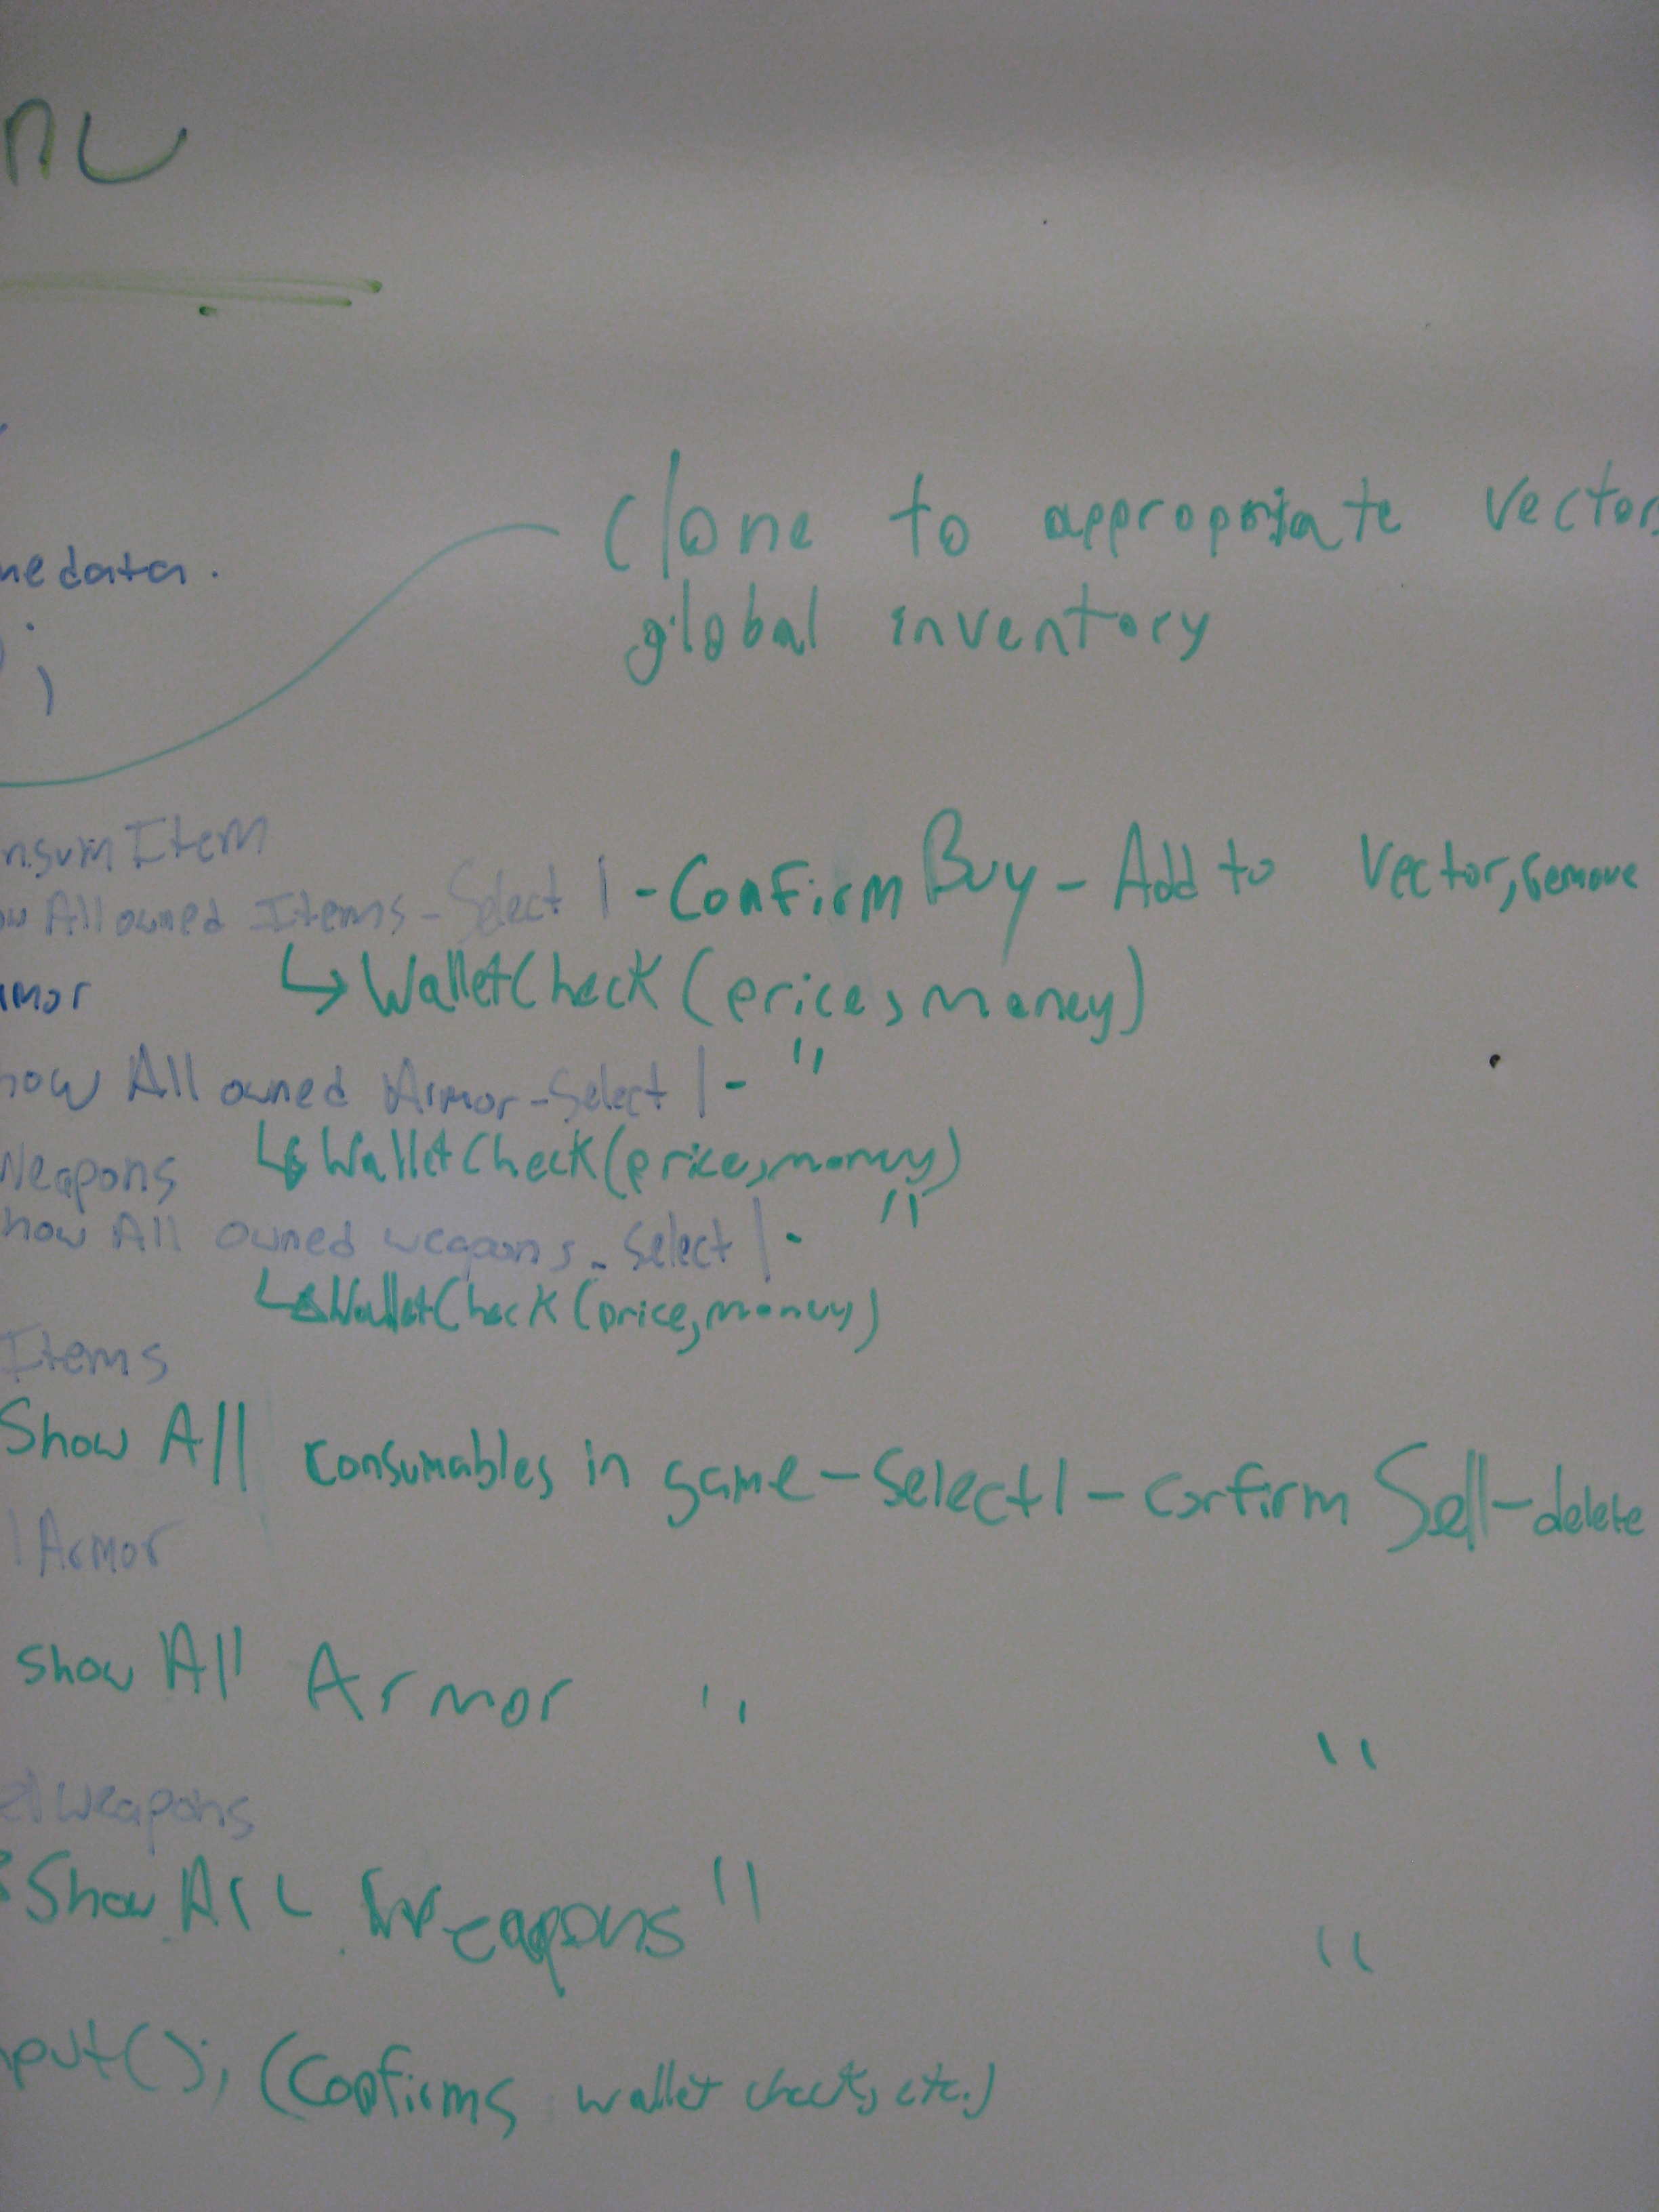 nu
nedata.
);
Clone to appropriate vector
global inventory
nsumItem
ow All owned Items - Select 1 - Confirm Buy - Add to Vector, remove
↳ WalletCheck (price, money)
rmor
how All owned Armor - Select 1 - "
↳ WalletCheck (price, money)
Weapons
how All owned weapons - Select 1 - "
↳ WalletCheck (price, money)
Items
Show All consumables in game - Select 1 - confirm Sell - delete
l Armor
show All Armor " "
el weapons
Show All Weapons " "
nput(); (Confirms wallet check, etc.)